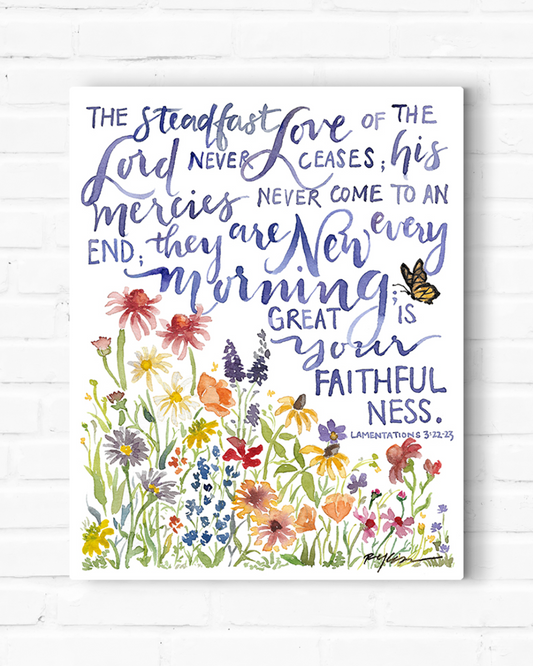 THE steadfast Love OF THE
Lord NEVER CEASES; his
mercies NEVER COME TO AN
END; they are New every
Morning;
GREAT IS
your
FAITHFUL
NESS.
LAMENTATIONS 3:22-23